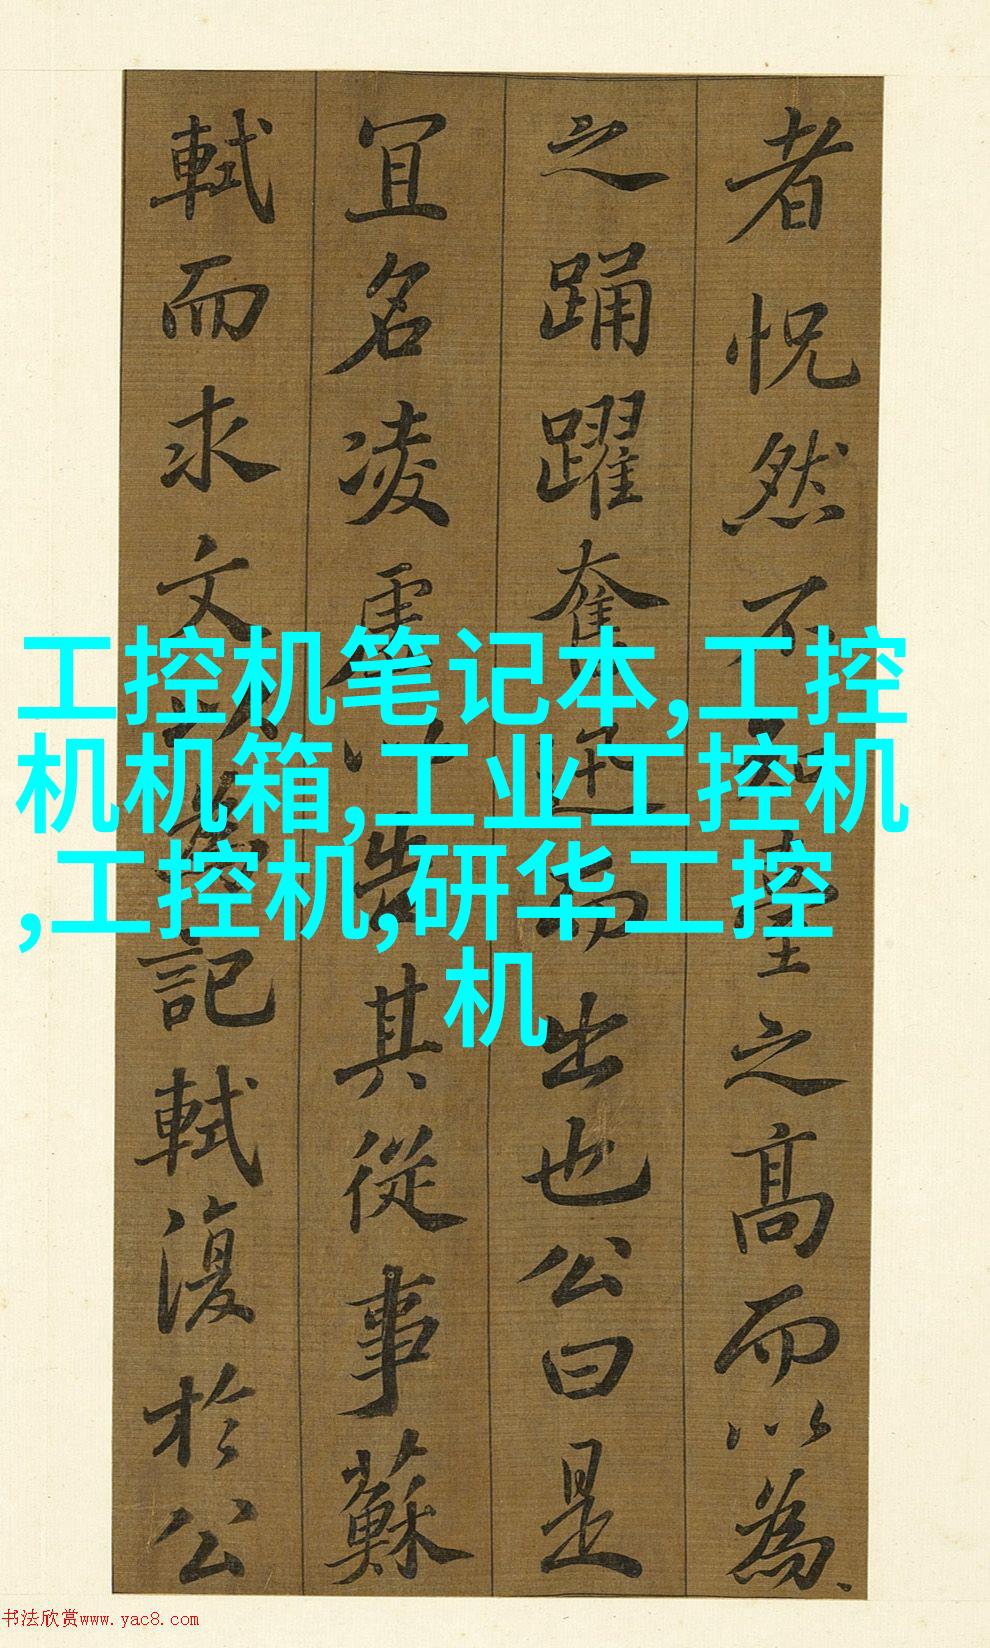 者怳然不知臺之高而以為
之踊躍奮迅而出也公曰是
宜名凌虛以告其從事蘇
軾而求文以為記軾復於公
工控机笔记本,工控
机机箱,工业工控机
,工控机,研华工控
机
书法欣赏www.yac8.com